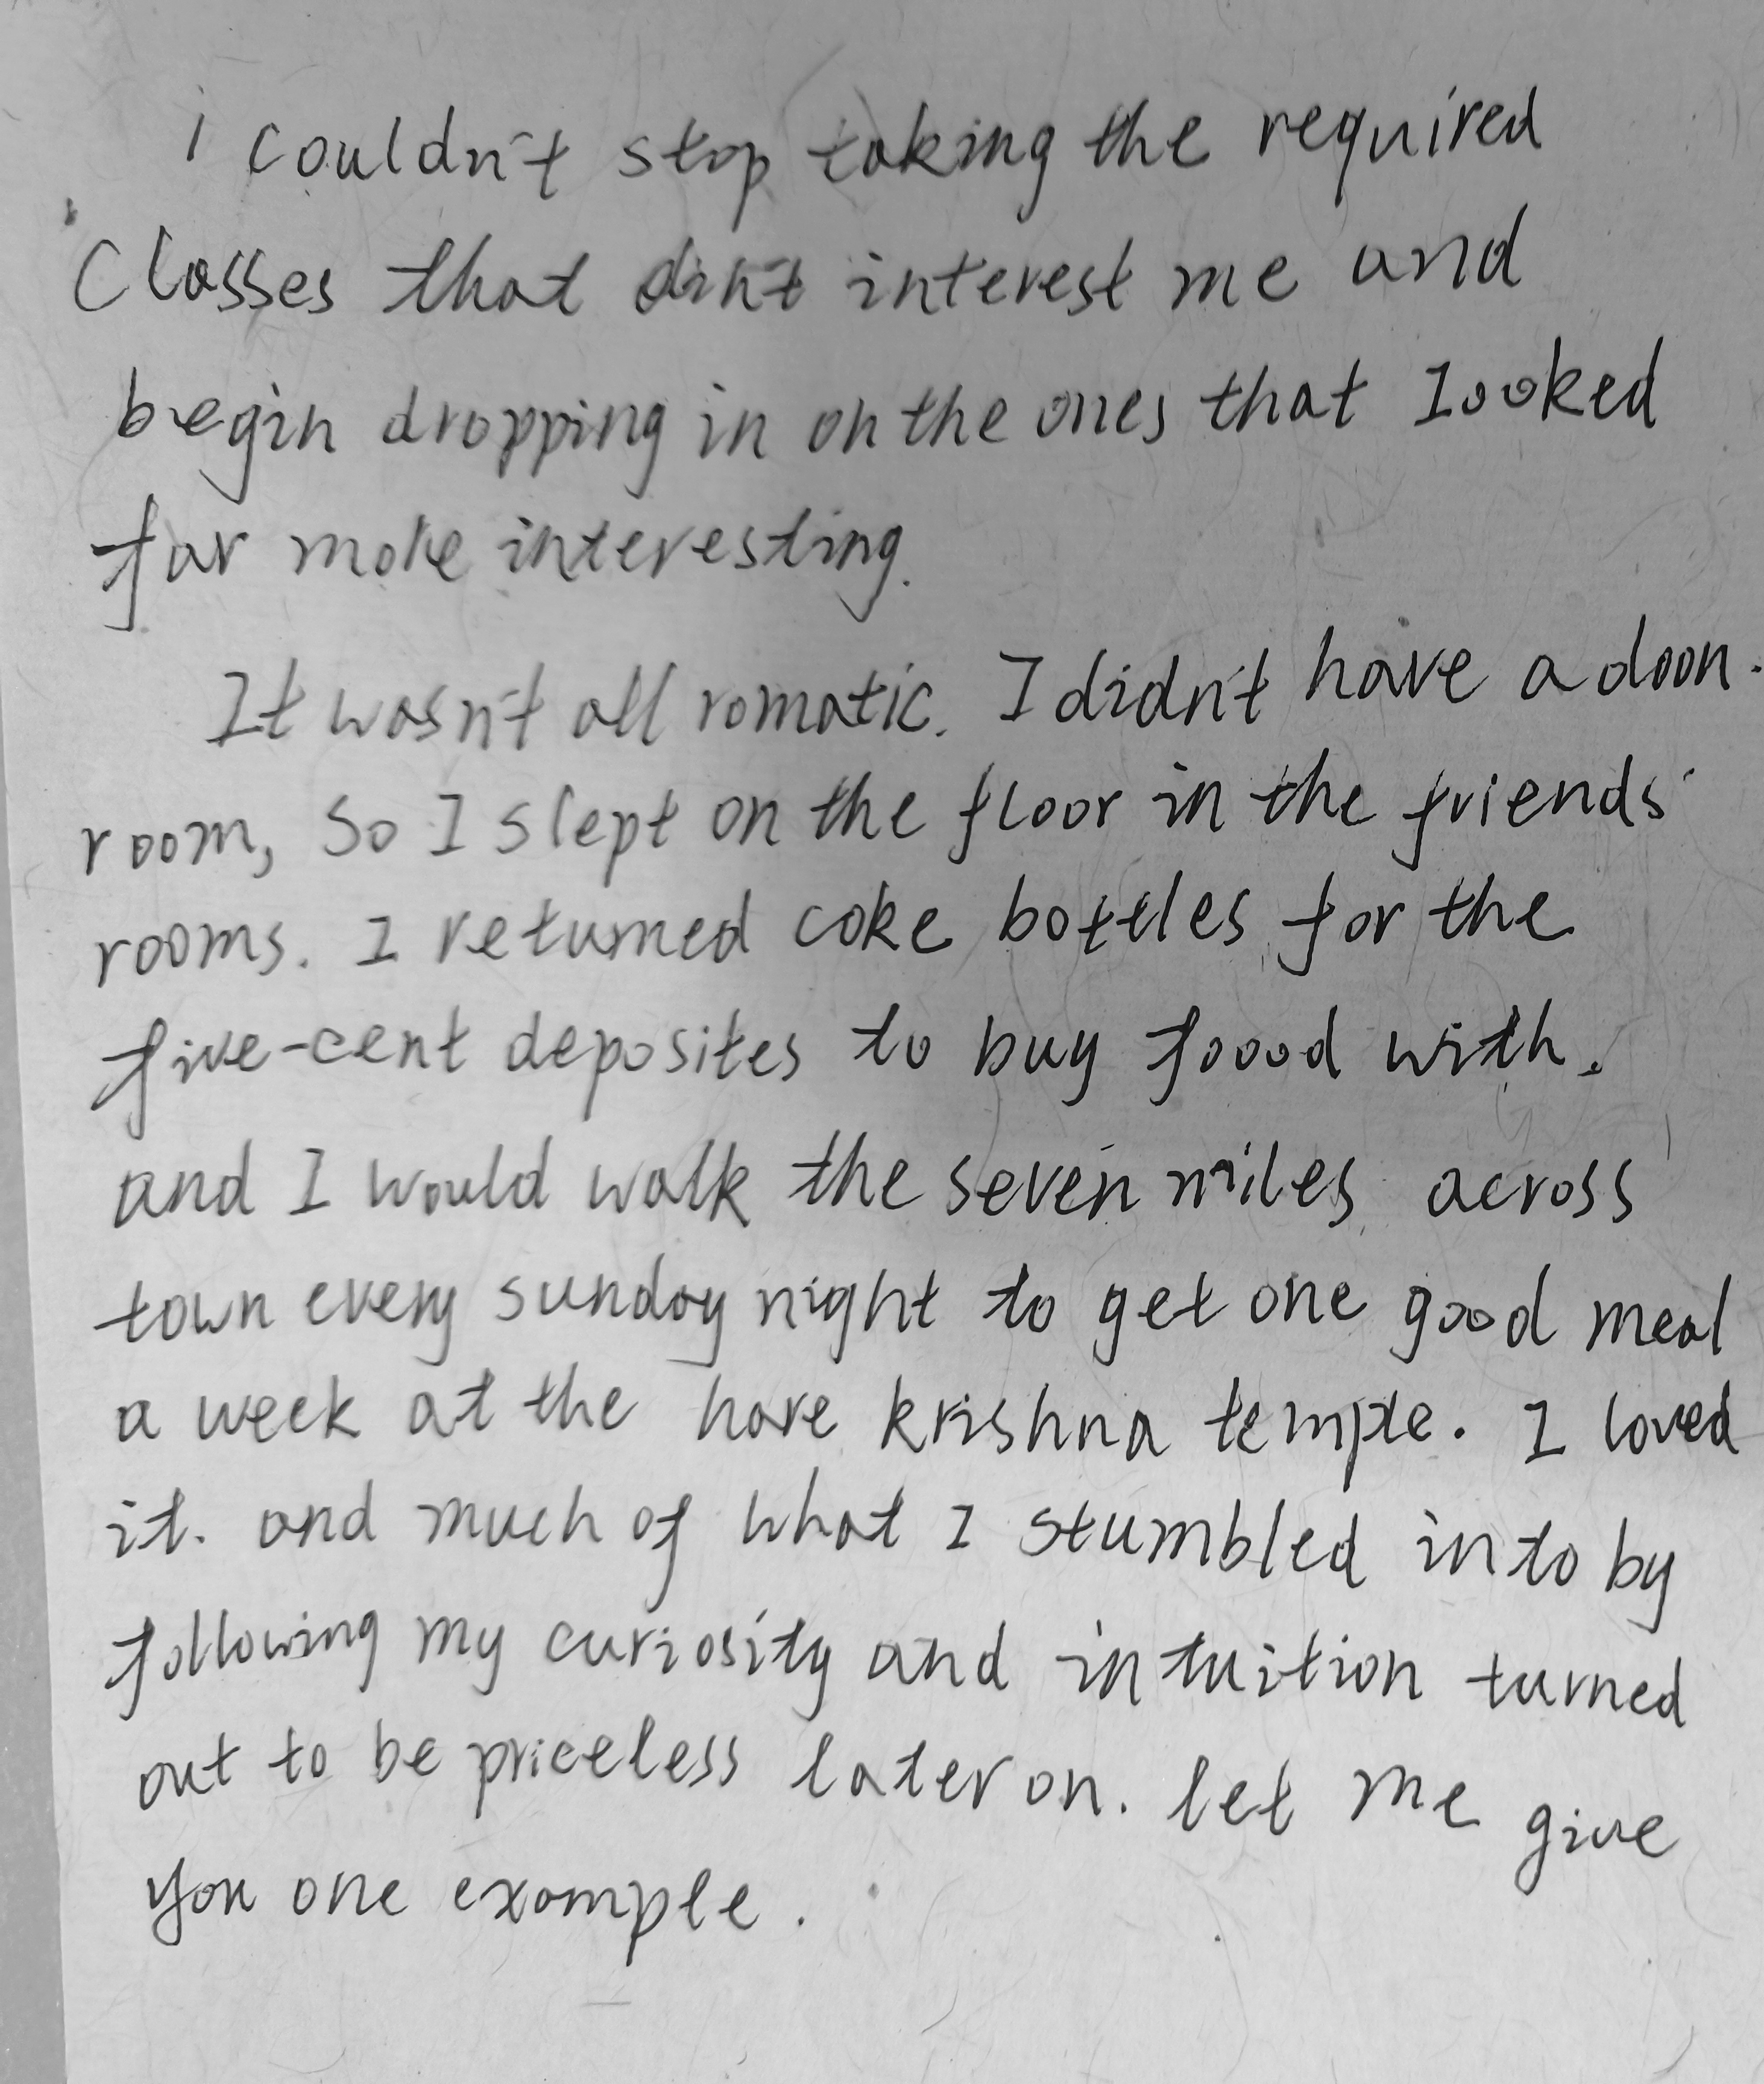 i couldn't stop taking the required
Classes that din't interest me and
begin dropping in on the ones that looked
far more interesting.
It wasn't all romatic. I didn't have a doon.
room, so I slept on the floor in the friends'
rooms. I returned coke bottles for the
five-cent deposites to buy foood with.
and I would walk the seven miles across
town every sunday night to get one good meal
a week at the hare krishna temple. I loved
it. and much of what I stumbled into by
following my curiosity and intuition turned
out to be priceless later on. let me give
you one example.